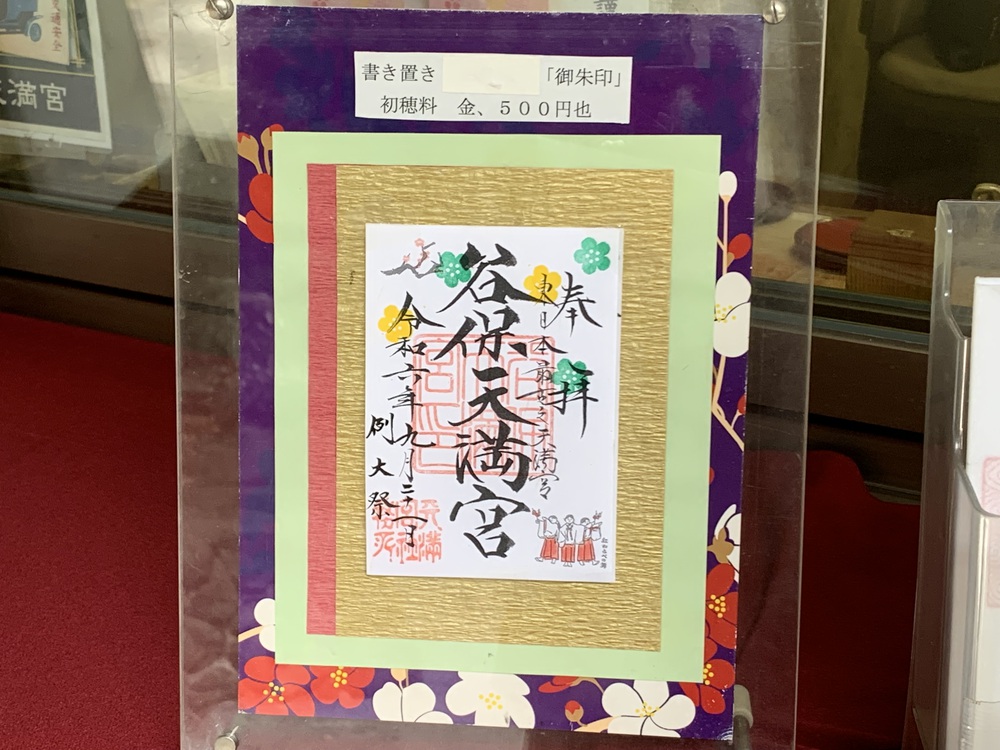 書き置き 「御朱印」
初穂料 金、５００円也
奉拝
東日本最古之天満宮
谷保天満宮
令和六年九月二十一日
例大祭
天満宮
交通安全